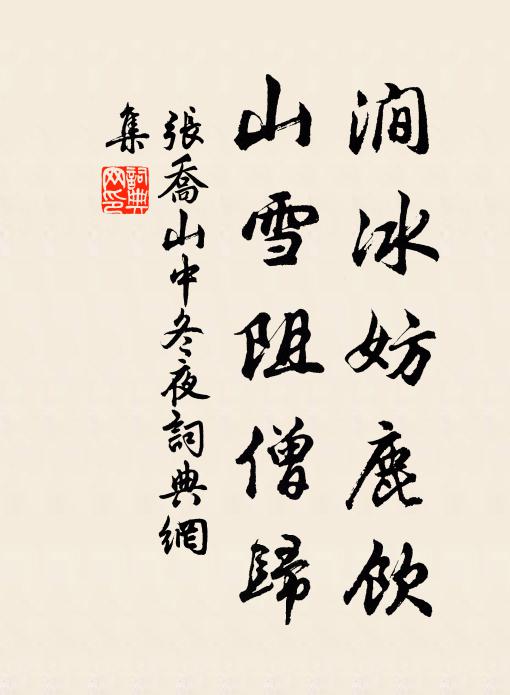 澗冰妨鹿飲
山雪阻僧歸
張喬山中冬夜詞典網
集
詞典網印